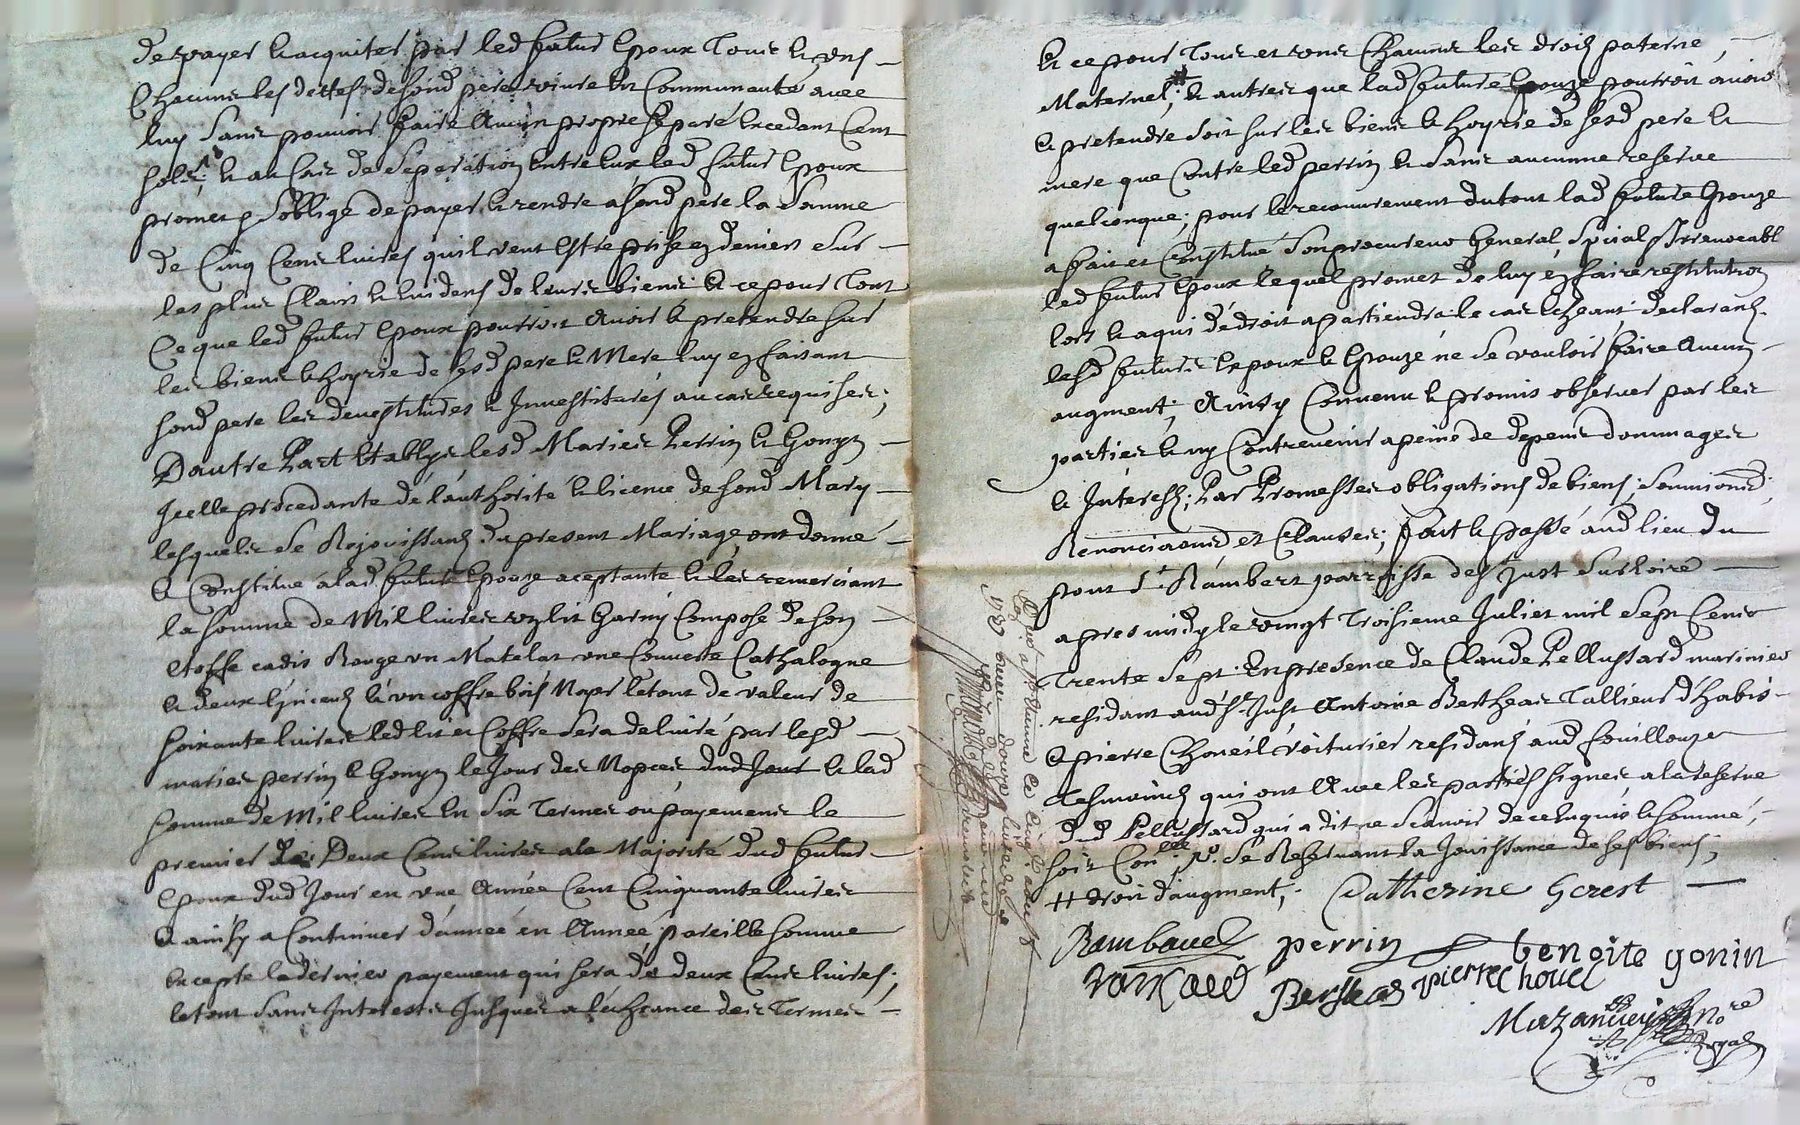 de payer et acquiter par led futur epoux tous et uns
chacuns les dettes de sond pere vivre en communauté avec
luy sans pouvoir faire aucun propre separé excedant cent
sols; et au cas de seperation entre eux led futur epoux
promet & s'oblige de payer et rendre a sond pere la somme
de cinq cens livres quil veut estre prise en deniers sur
les plus clairs et evidens de leurs biens et ce pour tout
ce que led futur epoux pourroit avoir et pretendre sur
les biens et hoyrie de sesd pere et mere luy en faisant
sond pere les devestitures et investitures au cas requises;
D'autre Part Etablys lesd Maries Perrin et Gonyn
Icelle procedante de l'authorité et licence de sond Mary
lesquels se Rejouissans du present Mariage ont donné
et constitué a lad future epouze aceptante et les remerciant
la somme de Mil livres un lit garny composé de son
etoffe cadis Rouge un Matelat une couverte Cathalogne
et deux linceuls et un coffre bois Noyer le tout de valeur de
soixante livres led lit et coffre sera delivré par lesd
maries perrin et Gonyn le Jour des Nopces dud Jour et lad
somme de Mil livres en six termes ou payemens le
premier de Deux Cens livres a la Majorité dud futur
epoux dud Jour en une Année Cent Cinquante livres
& ainsy a Continuer d'année en Année pareille somme
excepté le dernier payement qui sera de deux cens livres;
le tout sans Interests Jusques a l'echeance des Termes
et ce pour tous et uns chacuns les droits paternel,
Maternel; et autres que lad future epouze pourroit avoir
et pretendre soit sur les biens et hoyrie de sesd pere et
mere que contre led perrin et sans aucunne reserve
quelconque; pour le recouvrement du tout lad future epouze
a fait et constitué son procureur General, Special & Irrevocabl
led futur epoux lequel promet de luy en faire restitution
lors et a qui de droit apartiendra le cas echeant declarant
lesd futurs epoux et epouze ne se vouloir faire aucun
augment; Ainsy Convenu et promis observer par les
parties et ny contrevenir a peine de depens dommages
et Interest; Par Promesses obligations de biens, soumiond;
Renonciaond et Clauses; fait et passé aud lieu du
pont St Rambert parroisse de St Just sur loire
apres midy le vingt troisieme Juliet mil sept cens
trente sept En presence de Claude Pellussard marinier
residant aud St Just Antoine Bertheas Tallieur d'habis
& pierre Choveil voiturier residant aud fouillouze
tesmoins qui ont avec les parties signes a la reserve
dud Pellussard qui a dit ne scavoir de ce enquis et sommé,
soit Con.lée P.r se Reservant la Jouissance de ses biens,
++ droit d'augment; Catherine Gerest
perrin benoite gonin
Bertheas pierre chouel
Mazancieux no.re
Royal